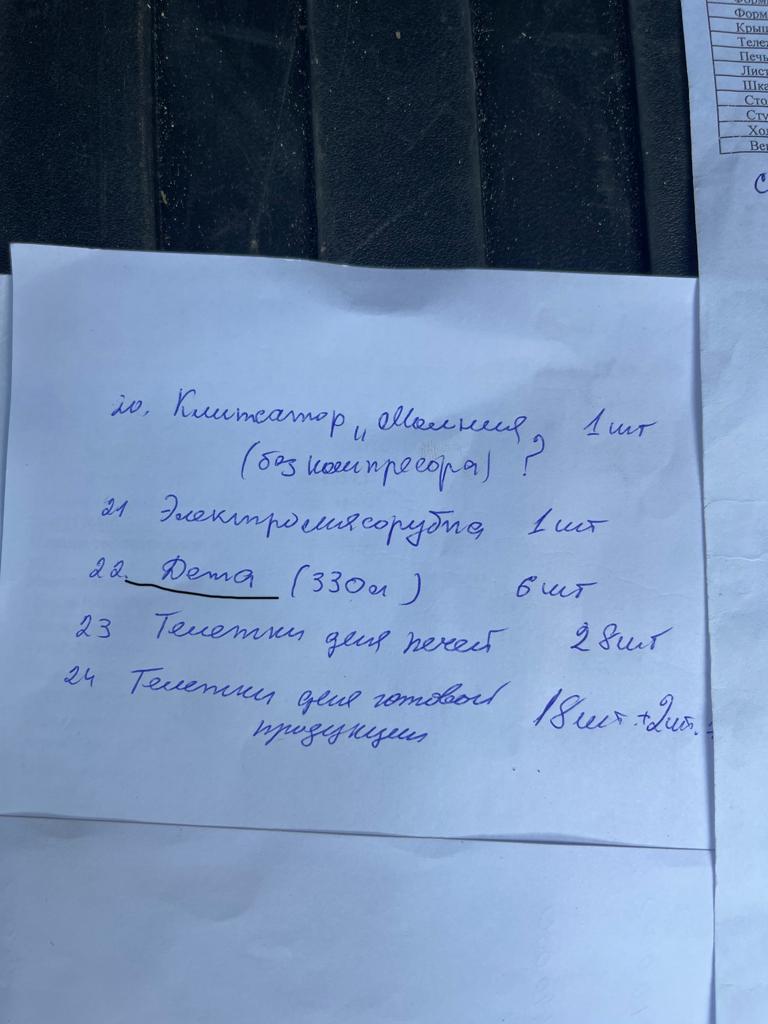 Форм
Крыш
Тележ
Печь
Лист
Шка
Сто
Сту
Хо
Ве
с
20. Клипсатор „Молния„ 1 шт
(без компресора) ?
21 Электромясорубка 1 шт
22. Дета (330л) 6 шт
23 Тележки для печей 28 шт
24 Тележки для готовой
продукции 18 шт + 2 шт.